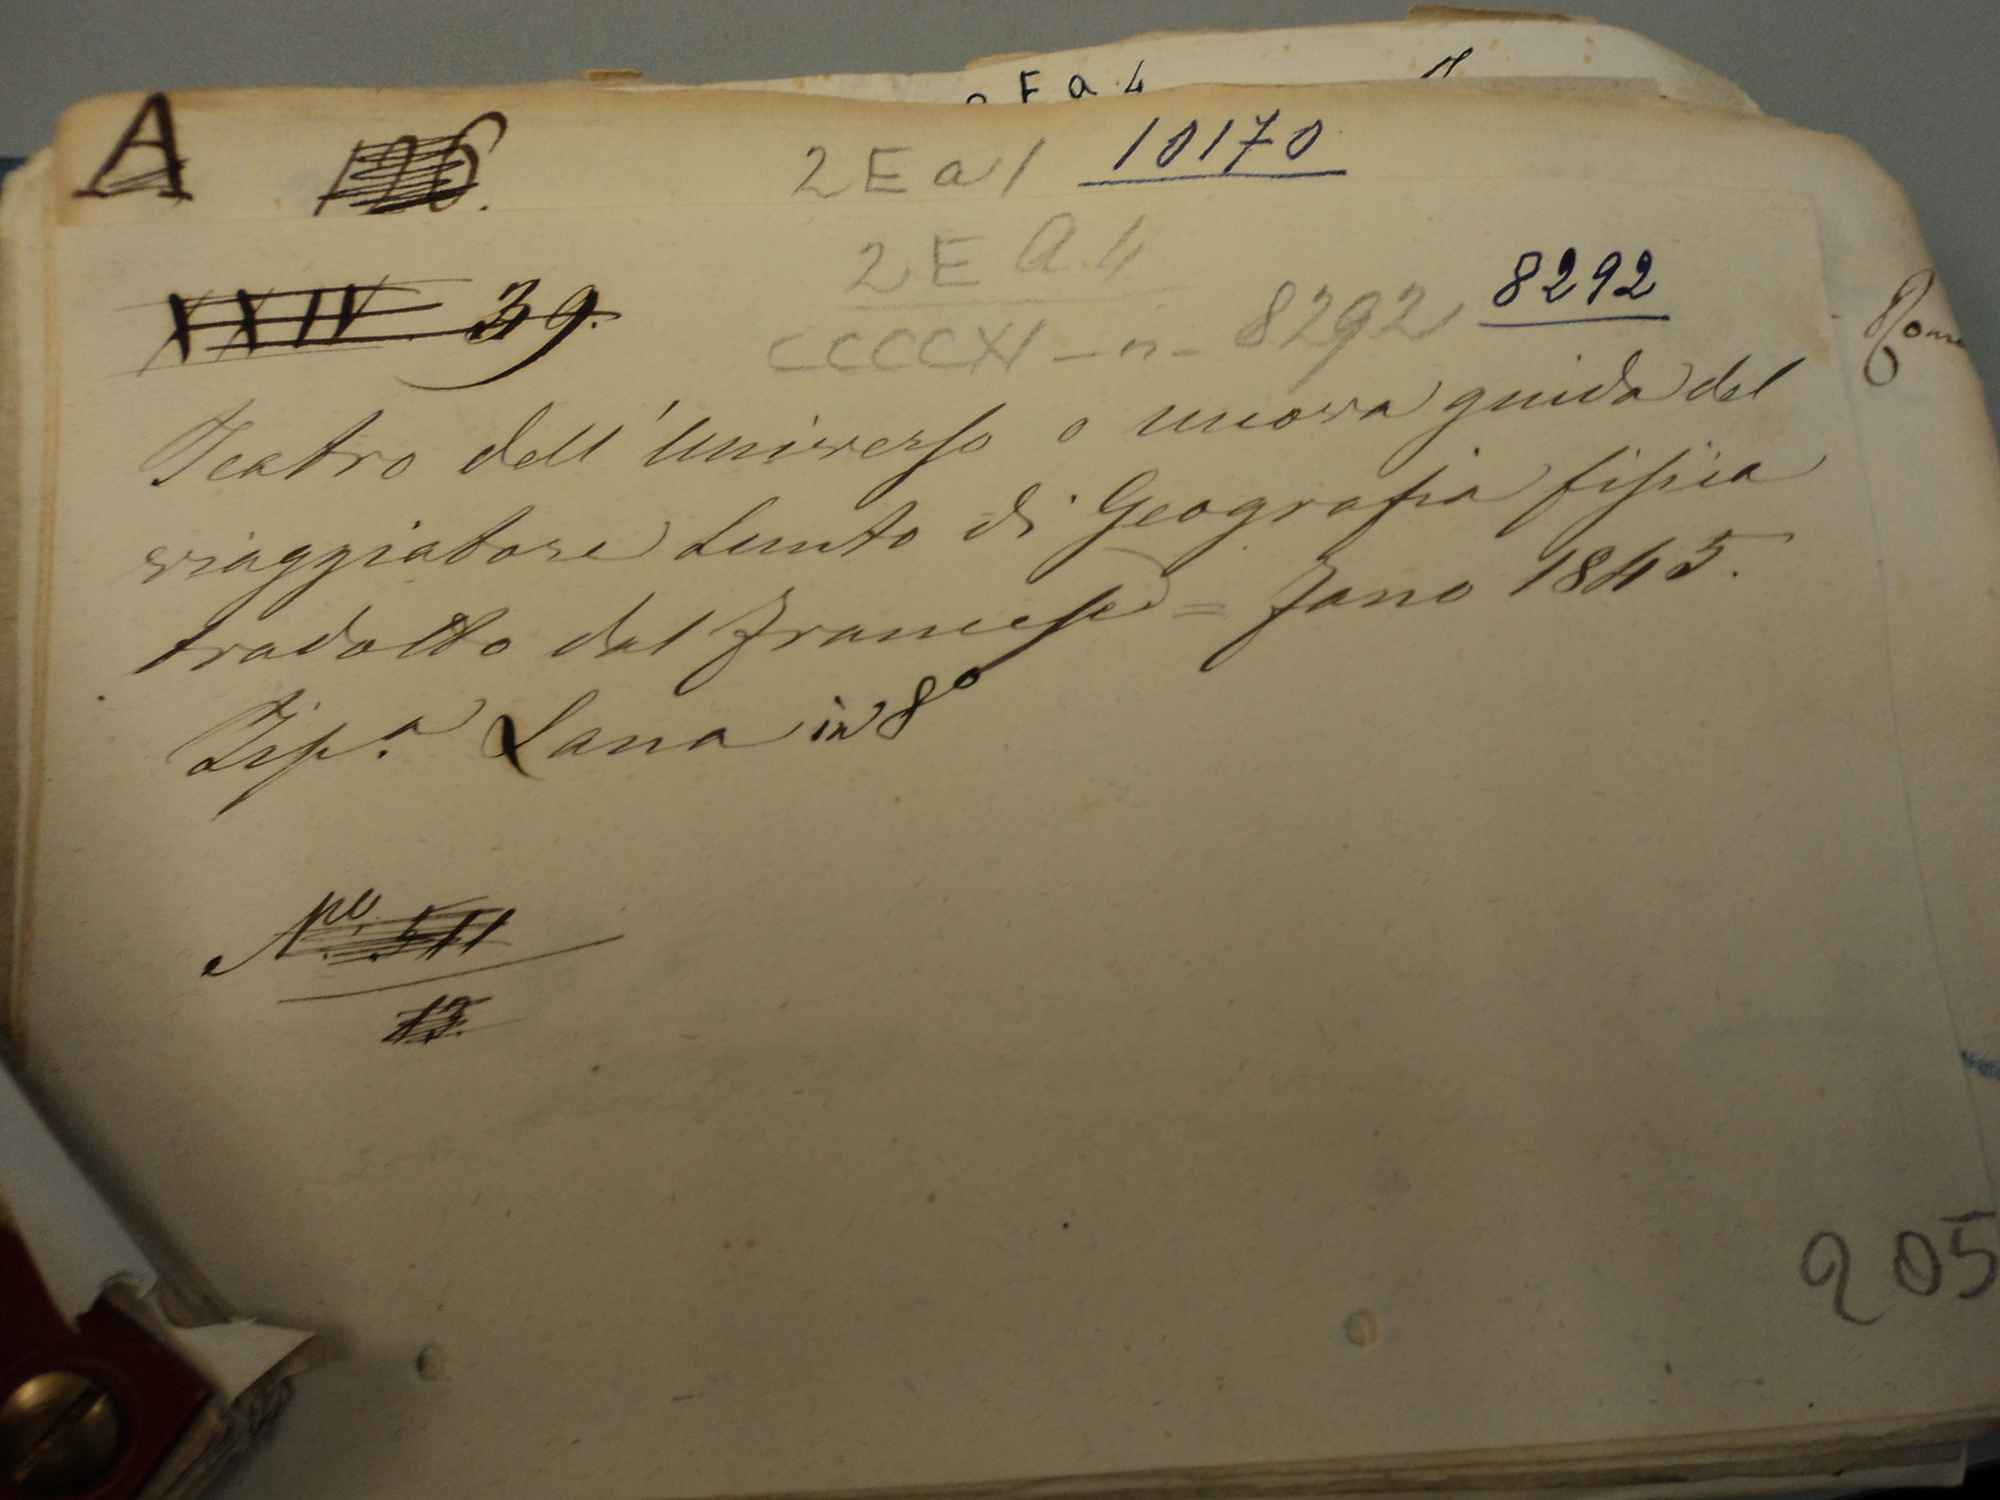 2 E a 4
A 126. 2 E a 1 10170
2 E a. 4
XXIV 39. CCCCXI - n - 8292 8292
Teatro dell'Universo o nuova guida del
viaggiatore Sunto di Geografia fisica
tradotto dal Francese = Fano 1845.
Tip.a Lana in 8°
No. 511
13.
205